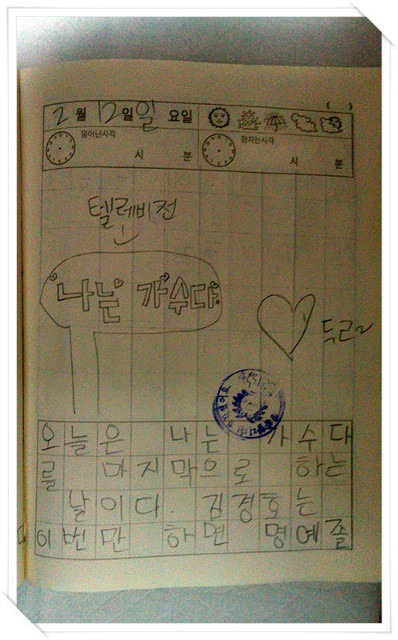 2월 12일 일요일
( )
일어난시각
시 분
잠자는시각
시 분
텔레비전
나는 가수다
두근~
오늘은 나는 가수다
를 마지막으로 하는
날이다. 김경호는
이번만 하면 명예졸